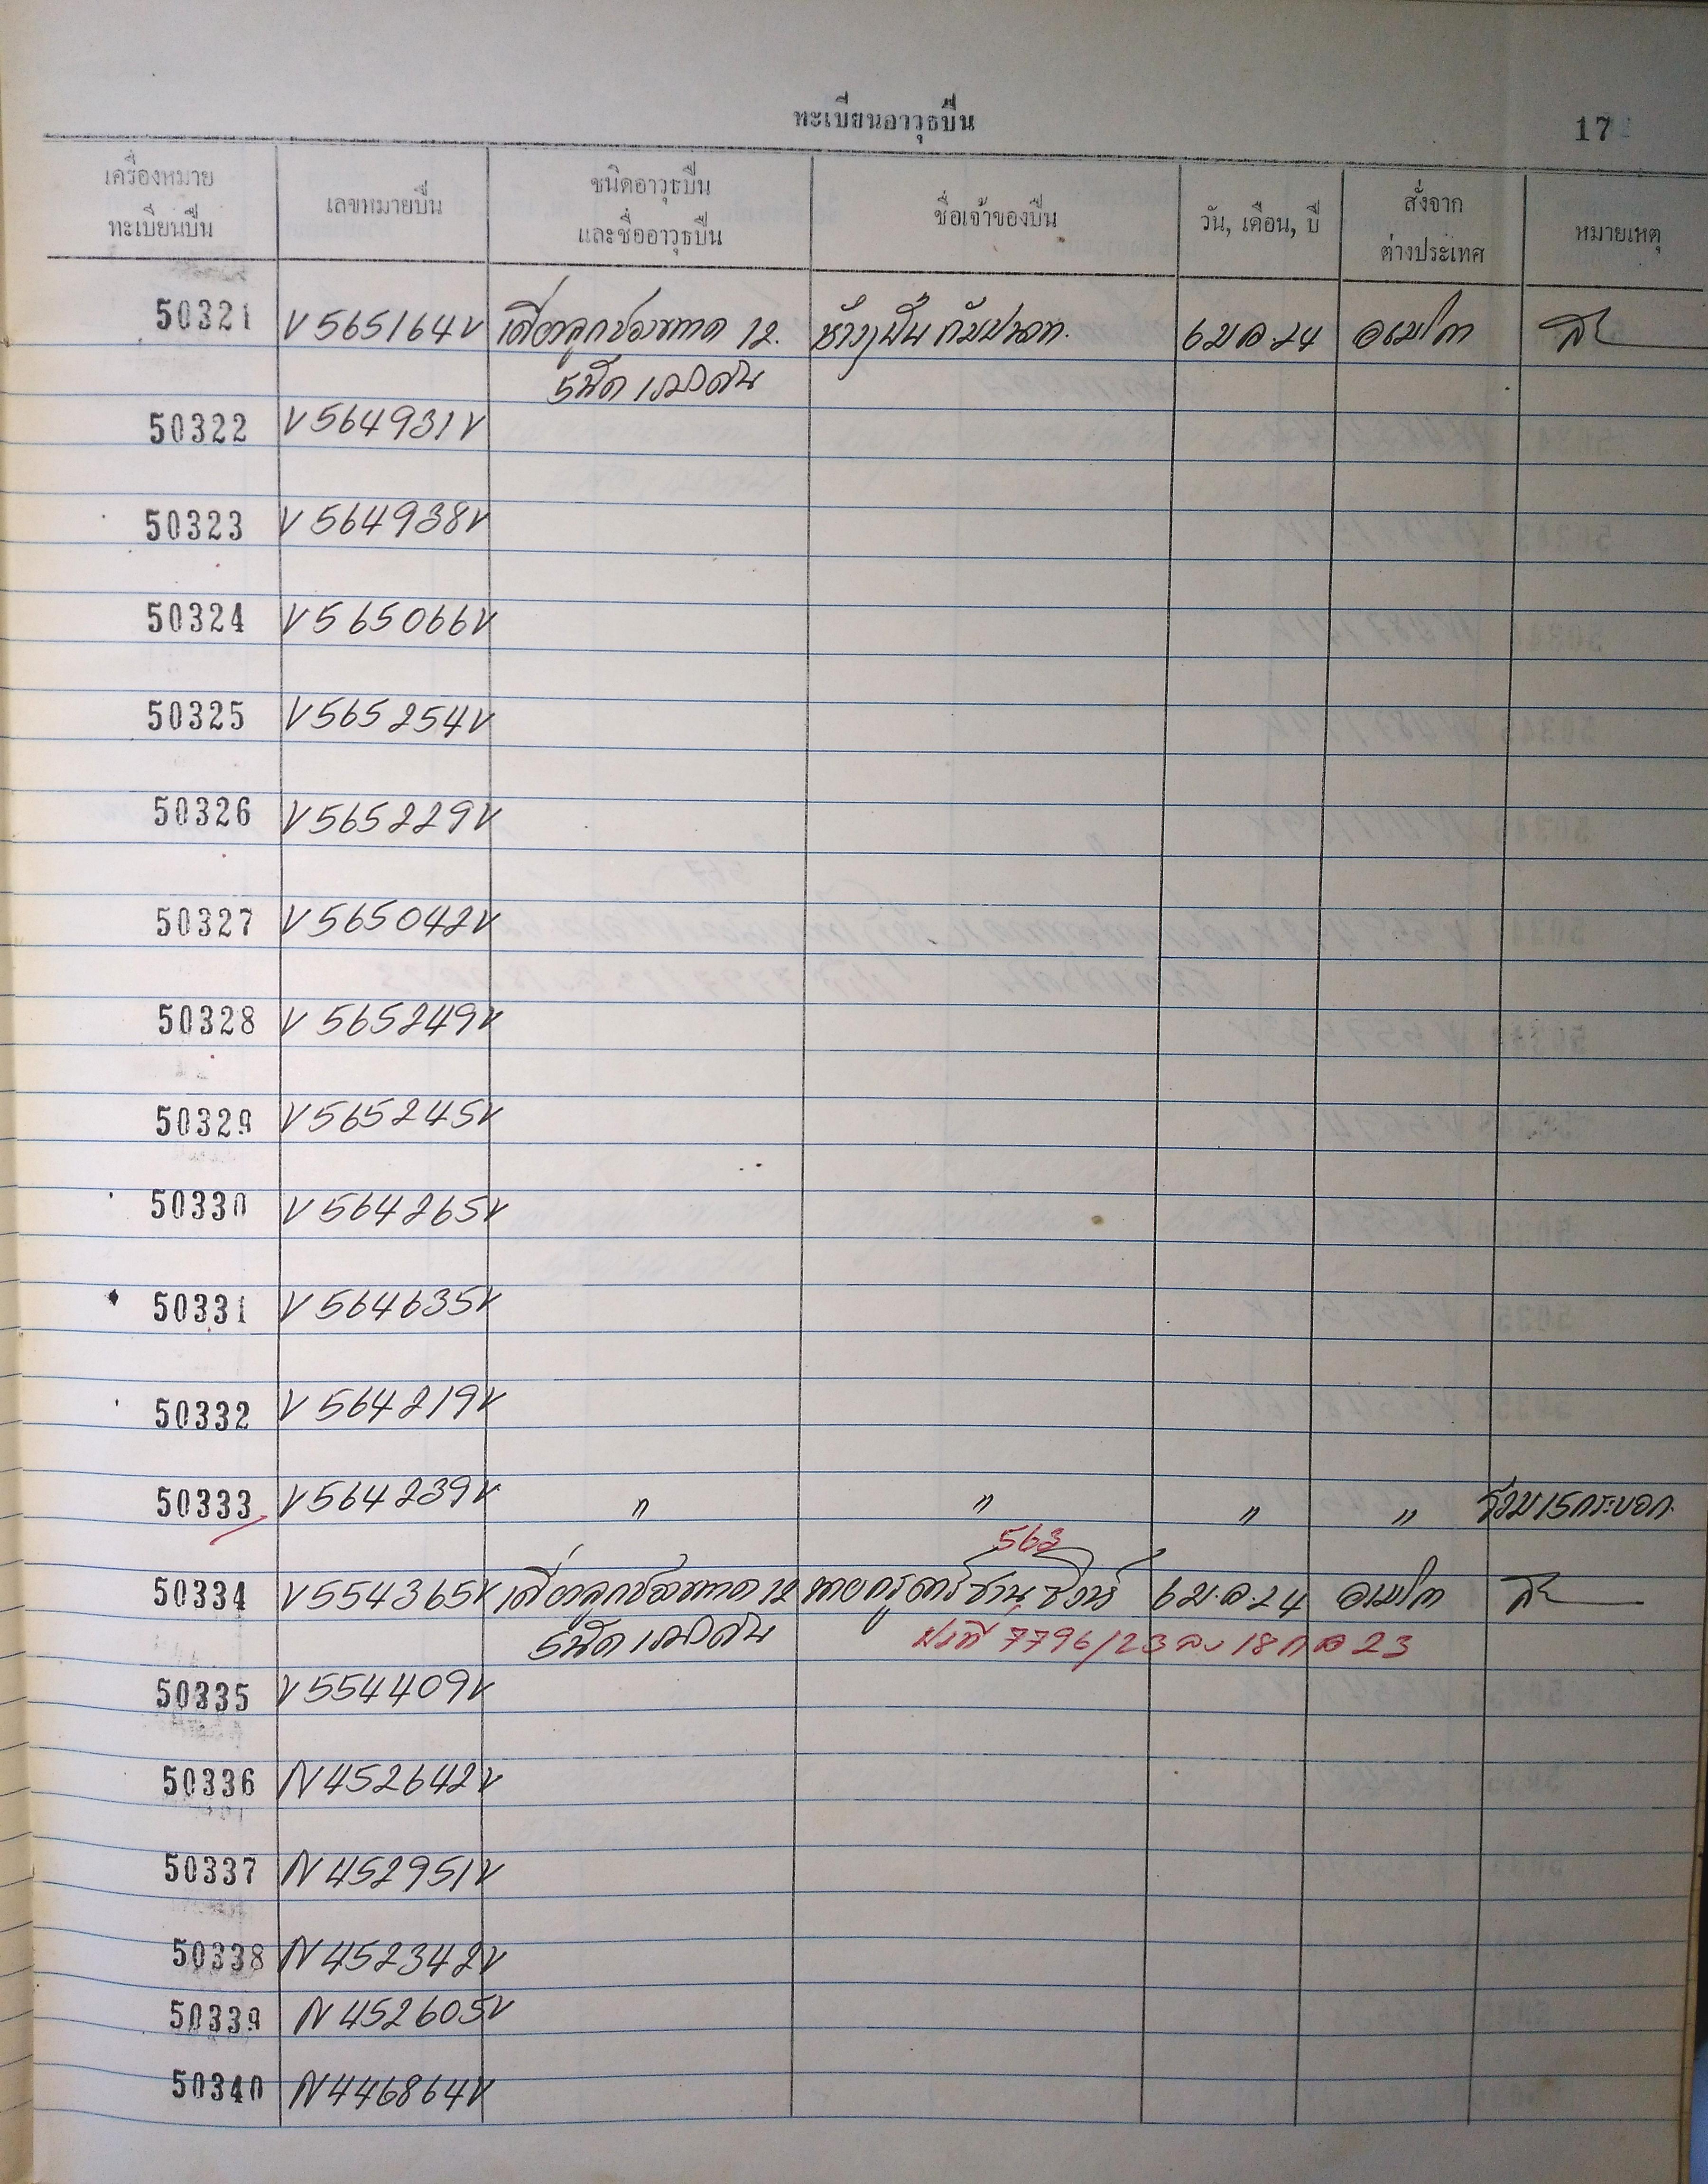 ทะเบียนอาวุธปืน
17
เครื่องหมาย
ทะเบียนปืน
เลขหมายปืน
ชนิดอาวุธปืน
และชื่ออาวุธปืน
ชื่อเจ้าของปืน
วัน, เดือน, ปี
สั่งจาก
ต่างประเทศ
หมายเหตุ
50321 V565164V เดี่ยวลูกซองขนาด 12. 6 ม.ค. 24 อเมริกา
5นัด
50322 V564931V
50323 V564938V
50324 V565066V
50325 V565254V
50326 V565229V
50327 V565042V
50328 V565249V
50329 V565245V
50330 V564265V
50331 V564635V
50332 V564219V
50333 V564239V " " " " รวม 15 กระบอก
563
50334 V554365V เดี่ยวลูกซองขนาด 12 นาย 6 ม.ค. 24 อเมริกา
5นัด ที่ 7796/23 ลง 18 ก ค 23
50335 V554409V
50336 N452642V
50337 N452951V
50338 N452342V
50339 N452605V
50340 N446864V